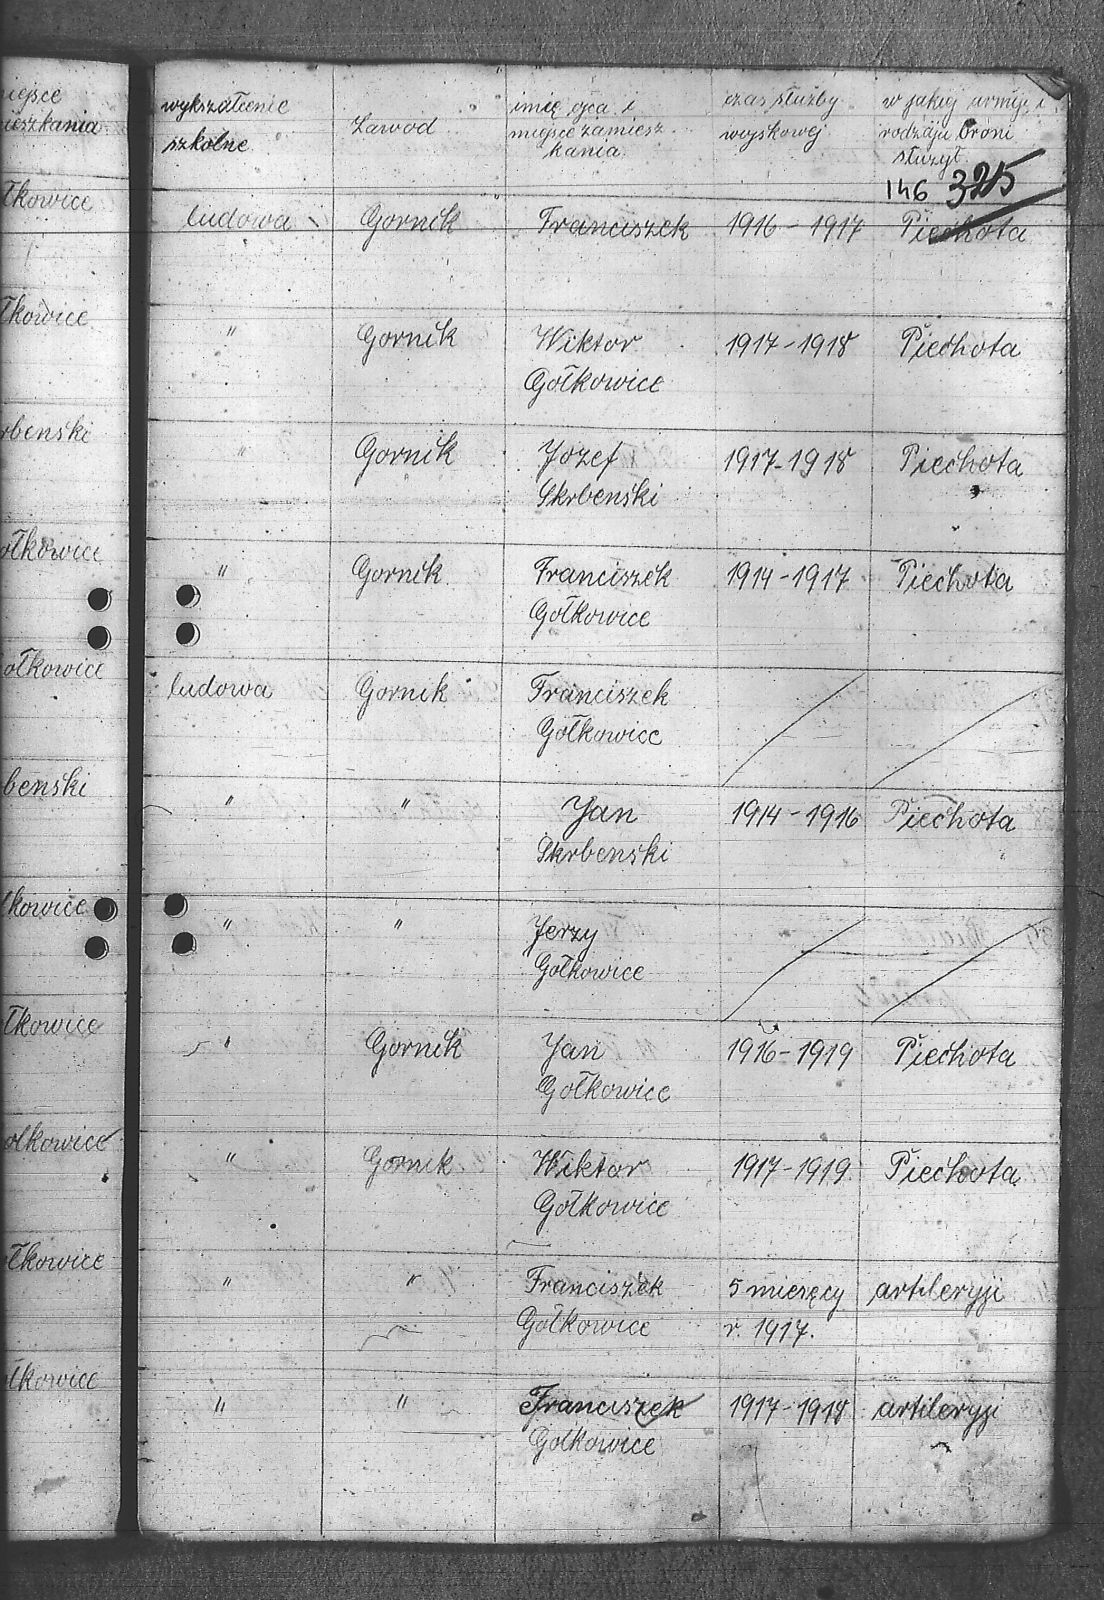 miejsce
mieszkania
łkowice
łkowice
rbenski
ołkowice
ołkowice
benski
łkowice
łkowice
ołkowice
ołkowice
ołkowice
wykształcenie
szkolne
Zawod
imię ojca i
miejsce zamiesz
kania.
czas służby
wojskowej
w jakiej armji i
rodzaju broni
służył.
146 325
ludowa Gornik Franciszek 1916 - 1917 Piechota
" Gornik Wiktor 1917-1918 Piechota
Gołkowice
" Gornik Jozef 1917-1918 Piechota
Skrbenski
" Gornik Franciszek 1914-1917 Piechota
Gołkowice
ludowa Gornik Franciszek
Gołkowice
" " Jan 1914-1916 Piechota
Skrbenski
" " Jerzy
Gołkowice
" Gornik Jan 1916-1919 Piechota
Gołkowice
" Gornik Wiktor 1917-1919 Piechota
Gołkowice
" " Franciszek 5 miesęcy artileryji
Gołkowice r. 1917.
" " Franciszek 1917-1918 artileryji
Golkowice